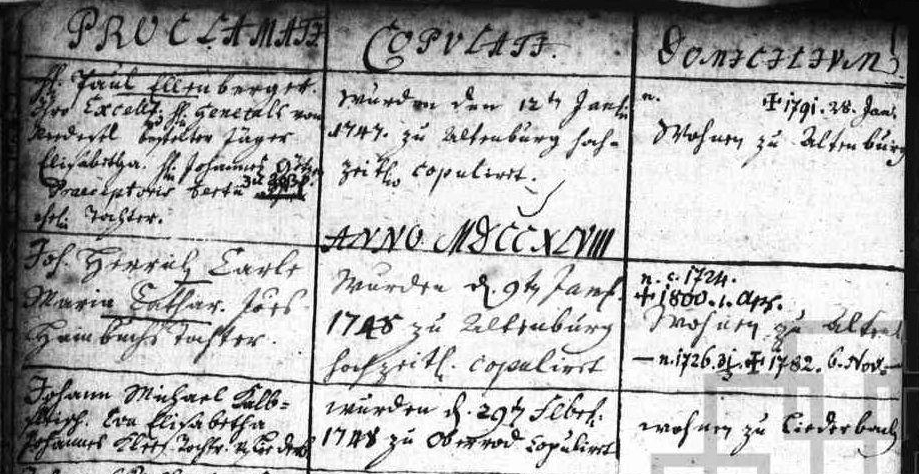 PROCLAMATI
COPULATI.
DOMICILIUM
H. Paul Ellenberger.
Ihro Excell. H. Generals von
bestelter Jäger
Elisabetha. H. Johannes
Praeceptoris
ehel. Tochter.
wurden den 12t Jan.
1747. zu Altenburg hoch-
zeitl. copulirt.
n. ✝ 1791. 28. Jan.
Wohnen zu Altenburg
ANNO MDCCXLVIII
Joh. Henrich Carle
Maria Cathar. Joes
Hambachs Tochter.
Wurden d. 9t Jan.
1748 zu Altenburg
hochzeitl. copulirt
n. c. 1724.
✝ 1800. 1. Apr.
Wohnen zu Alten
— n. 1726. ✝ 1782. 6. Nov. —
Johann Michael Kalb-
fleisch. Eva Elisabetha
Johannes Tochter
wurden d. 29t Febr.
1748 zu Oberrod copulirt
wohnen zu Liederbach